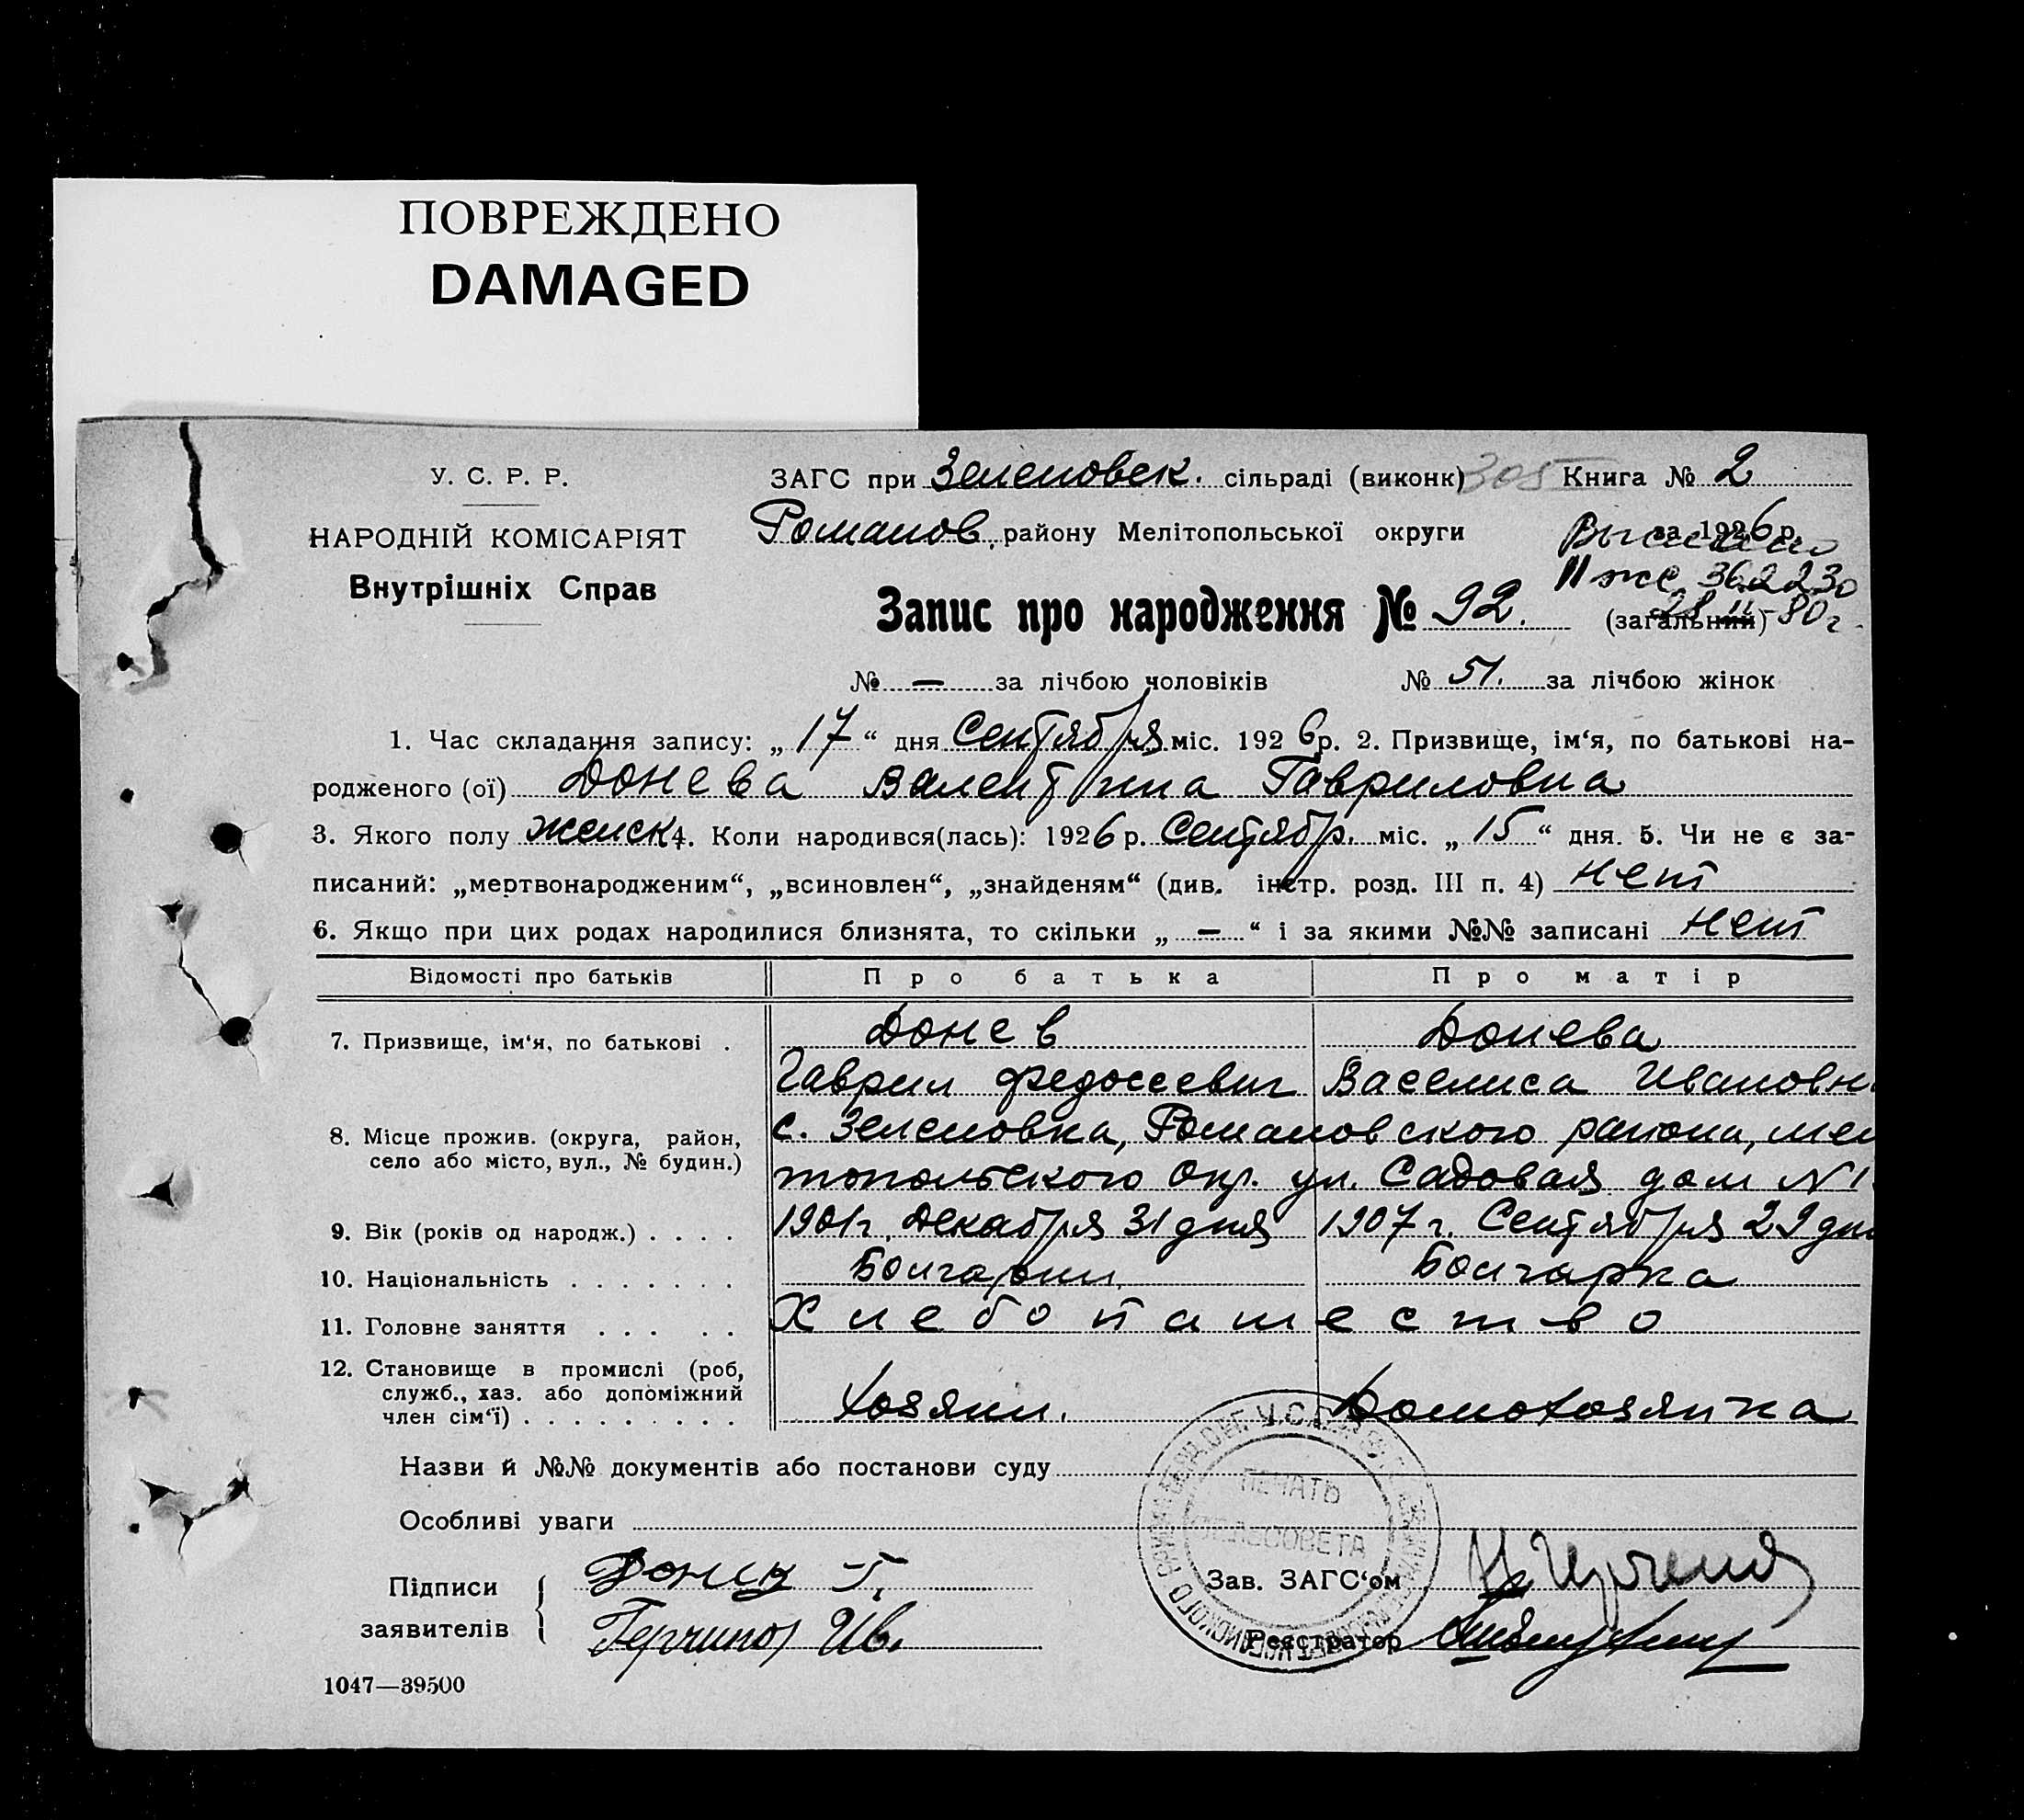 ПОВРЕЖДЕНО
DAMAGED
У. С. Р. Р.
НАРОДНІЙ КОМІСАРІЯТ
Внутрішніх Справ
ЗАГС при Зеленовск. сільраді (виконк) 305 Книга № 2
Романов. району Мелітопольської округи за 1926 р.
Выслано
II жс 362230
Запис про народження № 92. (загальний)
28 11-80 г.
№ — за лічбою чоловіків № 51. за лічбою жінок
1. Час складання запису: „ 17 “ дня Сентября міс. 1926 р. 2. Призвище, ім‘я, по батькові на-
родженого (ої) Донева Валентина Гавриловна
3. Якого полу женск 4. Коли народився(лась): 1926 р. Сентябр. міс. „ 15 “ дня. 5. Чи не є за-
писаний: „мертвонародженим“, „всиновлен“, „знайденям“ (див. інстр. розд. III п. 4) Нет
6. Якщо при цих родах народилися близнята, то скільки „ — “ і за якими №№ записані Нет
Відомості про батьків Про батька Про матір
7. Призвище, ім‘я, по батькові . Донев Донева
Гаврил Федоссевич Васелиса Ивановн
8. Місце прожив. (округа, район, село або місто, вул., № будин.) с. Зеленовка, Романовского района, мел
топольского Окр. ул. Садовая дом N 1
9. Вік (років од народж.) . . . . 1901 г. Декабря 31 дня 1907 г. Сентября 29 дн
10. Національність . . . . . . . Болгарин Болгарка
11. Головне заняття . . . . . Хлебопашество
12. Становище в промислі (роб, служб., хаз. або допоміжний член сім‘ї) . . . . . . . . . Хозяин. Домохозяйка
Назви й №№ документів або постанови суду
Особливі уваги
ПЕЧАТЬ
СЕЛЬСОВЕТА
Підписи
заявителів
Зав. ЗАГС‘ом
Реєстратор
1047—39500